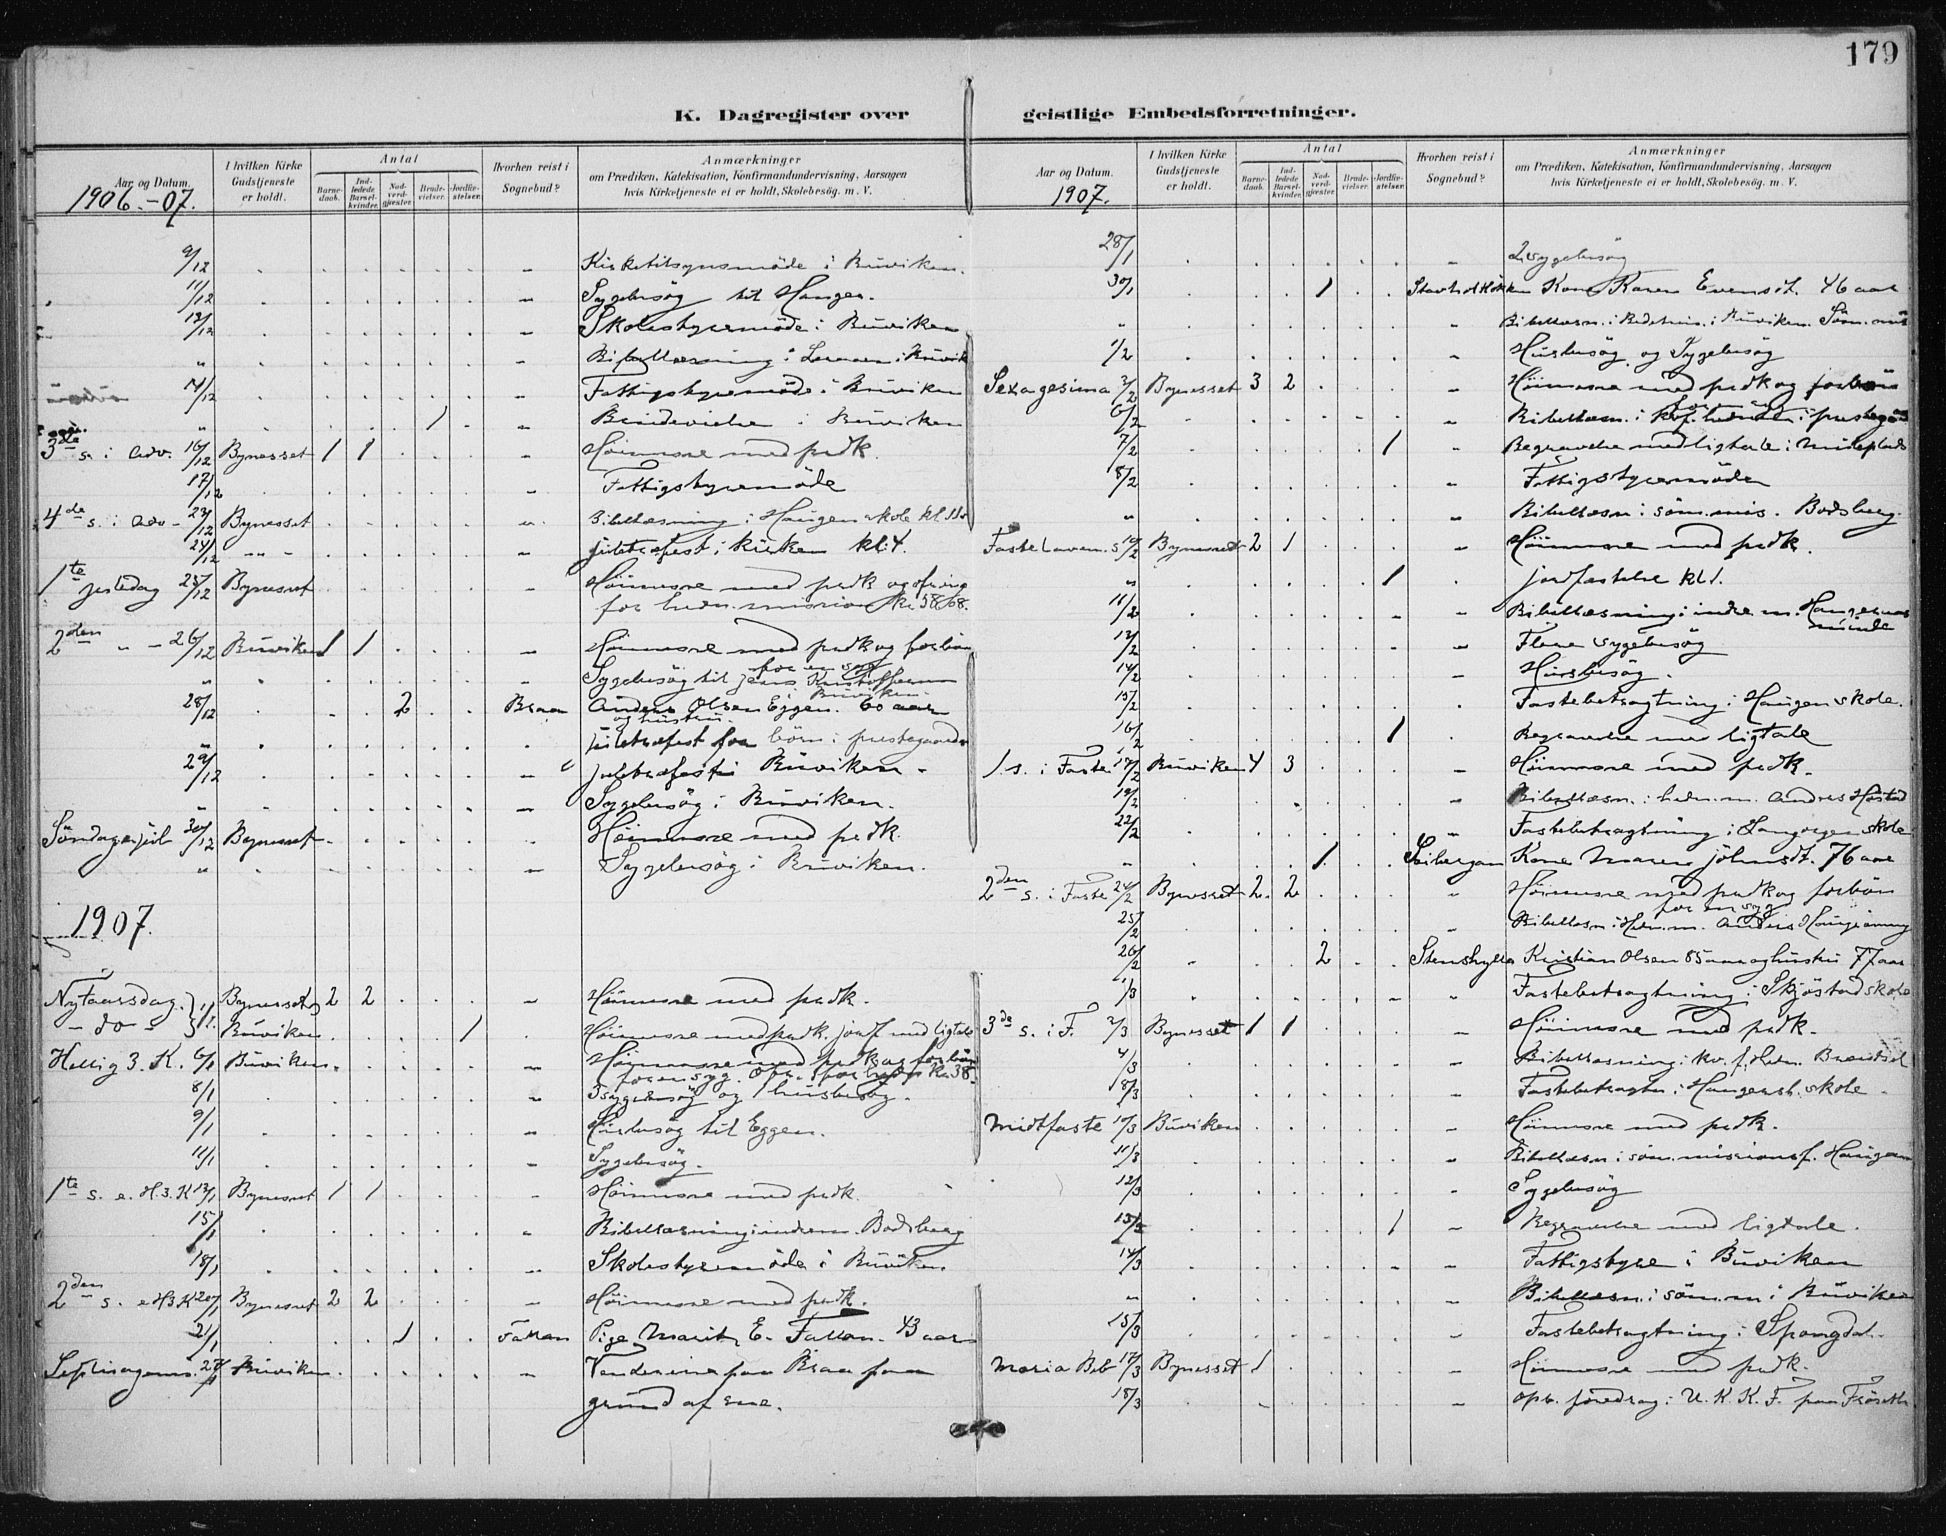 179
K. Dagregister over geistlige Embedsforretninger.
Aar og Datum. 1906.-07.
I hvilken Kirke Gudstjeneste er holdt.
Antal
Barnedaab.
Indledede Barselkvinder.
Nadverdgjester.
Brudevielser.
Jordfæstelser.
Hvorhen reist i Sognebud?
Anmærkninger
om Prædiken, Katekisation, Konfirmandundervisning, Aarsagen
hvis Kirketjeneste ei er holdt, Skolebesøg. m. V.
9/12 " Kirketilsynsmöde i Buviken.
11/12 " Sygebesög til Haugen.
13/12 " Skolestyremöde i Buviken
" " Bibellæsning i Buvik
14/12 Fattigstyremöde i Buviken
" 1 Brudevielse i Buviken
3de s. i adv. 16/12 Bynesset 1 1 Höimesse med prdk.
17/12 " Fattigstyremöde
4de s. i adv - 23/12 Bynesset " Bibellæsning i Haugen skole
24/12 " " juletræfest i kirken kl. 4.
1te juledag 25/12 Bynesset " Höimesse med prdk og ofring
for hedn. mission kr. 58.68.
2den " - 26/12 Buviken 1 1 " Höimesse med prdk og forbön
for en syg
" " Sygebesög til Jens Kristoffersen
i Buviken.
28/12 2 Braa Anders Olsen Eggen. 60 aar
og hustru.
" juletræfest for börn i prestegaarden
29/12 " juletræfest i Buviken.
" " Sygebesög i Buviken.
Söndag e. jul 30/12 Bynesset Höimesse med prdk.
" " Sygebesög i Buviken.
1907.
Nytaarsdag. 1/1. Bynesset og 2 2 " Höimesse med prdk.
- do - Buviken. 1 Höimesse med prdk. jordf. med ligtale
Hellig 3. K. 6/1 Buviken. " Höimesse med prdk og forbön
for en syg. Kr. 38.
8/1 " Sygebesög og husbesög.
9/1 " Husbesög til Eggen.
11/1 " Sygebesög.
1te s. e. H. 3. K 13/1 Bynesset 1 1 " Höimesse med prdk.
15/1 " Bibellæsning i indrem. Bodsberg
18/1 " Skolestyremöde i Buviken
2den s. e H3K 20/1 Bynesset 2 2 " Höimesse med prdk.
21/1 1 Fallan Pige Marit E. Fallan. 43 aar
Septuagesima. 27/1 Buviken. " Vendereise paa Braa paa
grund af sne.
Aar og Datum. 1907.
I hvilken Kirke Gudstjeneste er holdt.
Antal
Barnedaab.
Indledede Barselkvinder.
Nadverdgjester.
Brudevielser.
Jordfæstelser.
Hvorhen reist i Sognebud?
Anmærkninger
om Prædiken, Katekisation, Konfirmandundervisning, Aarsagen
hvis Kirketjeneste ei er holdt, Skolebesøg. m. V.
28/1 " 2 sygebesög
30/1 1 Kone Karen Evensdt. 46 aar
" " Bibellæsn. i Bedehus. i Buviken. Söm. mis
1/2 " Husbesög og Sygebesög
Sexagesima 3/2 Bynesset 3 2 " Höimesse med prdk og forbön
for en syg
6/2 " Bibellæsn. i kvf. hedn. i prestegd
7/2 1 " Begravelse med ligtale i
8/2 Fattigstyremöde
" " Bibellæsn i söm. mis. Bodsberg.
Fastelaven. s 10/2 Bynesset 2 1 " Höimesse med prdk.
" 1 jordfæstelse kl 1.
11/2 " Bibellæsning i indre m. Haugernes
minde
12/2 " Flere sygebesög
14/2 " Husbesög.
15/2 Fastebetragtning i Haugen skole.
16/2 1 Begravelse med ligtale
1. s. i Faste 17/2 Buviken 4 3 " Höimesse med prdk.
19/2 " Bibellæsn. i hedn. m. Andres Höstad
22/2 " Fastebetragtning i Langörgen skole
" 1 Kone Maren Johnsdt. 76 aar
2den s. i Faste 24/2 Bynesset 2. 2 " Höimesse med prdk og forbön
for en syg
25/2 Bibellæsn. i Hedn. m. Anders
26/2 2 Stenshylla Kristian Olsen 85 aar og hustru 77 aar
1/3 " Fastebetragtning i Skjöstad skole
3de s. i F. 3/3 Bynesset 1 1 " Höimesse med prdk.
4/3 " Bibellæsning i kv. f. Hedn.
8/3 Fastebetragtn i skole
Midtfaste 10/3 Buviken " Höimesse med prdk.
11/3 Bibellæsn i söm. missionsf. Haugen
12/3 " Sygebesög
13/3 1 " Begravelse med ligtale.
14/3 Fattigstyre i Buviken
" " Bibellæsn. i söm. m i Buviken
15/3 " Fastebetragtning i Spongdal.
Maria Beb 17/3 Bynesset 1 " Höimesse med prdk.
18/3 " opb. foredrag i U. K. K. F. paa Fröseth